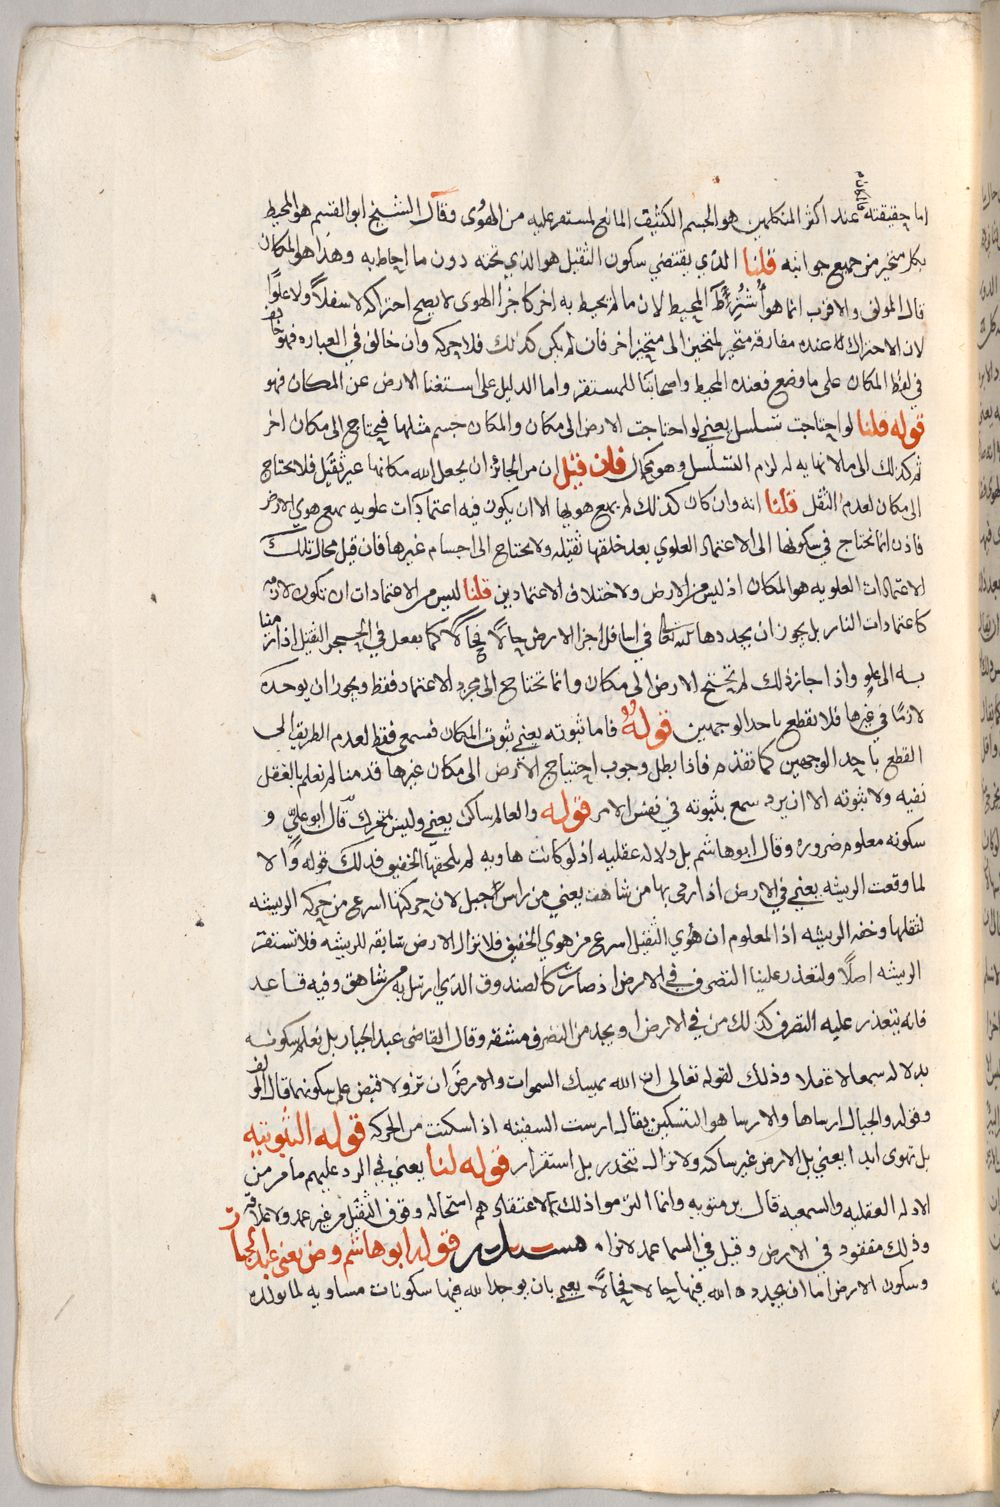 اما حقيقته عند اكثر المتكلمين هو الجسم الكثيف المانع لمستقر عليه من الهوى وقال الشيخ ابو القسم هو المحيط
بكل متحيز من جميع جوانبه قلنا الذي يقتضي سكون الثقيل هو الذي تحته دون ما احاط به وهذا هو المكان
قال المولف والاقرب انما هو المحيط لان ما لم يحيط به اخر كاخر الهوى لا يصح احتراكه لا سفلا ولا علوا
لان الاحتراك عنده مفارقه متحيز لمتحيز الى متحيز اخر فان لم يكن كذلك فلا حركه وان خالف في العباره فهو
في لفظ المكان على ما وضع فعنده المحيط واصحابنا للمستقر واما الدليل على استغنا الارض عن المكان فهو
قوله قلنا لو احتاجت تسلسل يعني لو احتاجت الارض الى مكان والمكان جسم مثلها فيحتاج الى مكان اخر
ثم كذلك الى ما لا نهايه له لزم التسلسل وهو محال فان قيل ان من الجائز ان يجعل الله مكانها غير ثقيل فلا يحتاج
الى مكان لعدم الثقل قلنا انه وان كان كذلك لم يمنع هويها الا ان يكون فيه اعتمادات علويه يمنع هوي الارض
فاذن انما تحتاج في سكونها الى الاعتماد العلوي بعد خلقها ثقيله ولا تحتاج الى اجسام غيرها فان قيل محال تلك
الاعتمادات العلويه هو المكان اذ ليس من الارض ولاختلاف الاعتمادين قلنا ليس من الاعتمادات ان تكون لازمه
كاعتمادات النار بل يجوز ان يجددها الله تعالى في اسافل اجزا الارض حالا فحالا كما يفعل في الحجر الثقيل اذا
به الى علو واذا جاز ذلك لم تحتج الارض الى مكان وانما تحتاج الى مجرد الاعتماد فقط ويجوز ان يوجده
لازما في غيرها فلا نقطع باحد الوجهين قوله فاما ثبوته يعني ثبوت المكان فسمعي فقط لعدم الطريق الى
القطع باحد الوجهين كما تقدم فاذا بطل وجوب احتياج الارض الى مكان غيرها قدمنا لم نعلم بالعقل
نفيه ولا ثبوته الا ان يرد سمع بثبوته في نفس الامر قوله والعالم ساكن يعني وليس بمتحرك قال ابو علي و
سكونه معلوم ضروره وقال ابو هاشم بل دلاله عقليه اذ لو كانت هاويه لم يلحقها الخفيف فذلك قوله والا
لما وقعت الريشه يعني في الارض اذا رمي بها من شاهق يعني من راس جبل لان حركتها اسرع من حركه الريشه
لثقلها وخفه الريشه اذ المعلوم ان هوي الثقيل اسرع من هوي الخفيف فلا تزال الارض سابقه للريشه فلا تستقر
الريشه اصلا ولتعذر علينا التصرف في الارض اذ صارت كالصندوق الذي ارسل به من شاهق وفيه قاعد
فانه يتعذر عليه التصرف كذلك من في الارض او يجد من التصرف مشقه وقال القاضي عبد الجبار بل نعلم سكونه
بدلاله سمعا لا عقلا وذلك لقوله تعالى ان الله يمسك السموات والارض ان تزولا فنص على سكونهما قال
وقوله والجبال ارساها والارسا هو التسكين يقال ارست السفينه اذا سكنت من الحركه قوله الثنويه
بل تهوي ابدا يعني بل الارض غير ساكنه ولا تزال تنحدر بل استقرار قوله لنا يعني في الرد عليهم ما مر من
الادله العقليه والسمعيه قال بن متويه وانما التزموا ذلك لاعتقادهم استحاله وقوف الثقيل من غير عمد ولا علاقه
وذلك مفقود في الارض وقيل في السما عمد لا نرا مسئله قوله ابو هاشم وض يعني عبد الجبار
وسكون الارض اما ان يجدده الله فيها حالا فحالا يعني بان يوجد الله فيها سكونات مساويه لما تولده